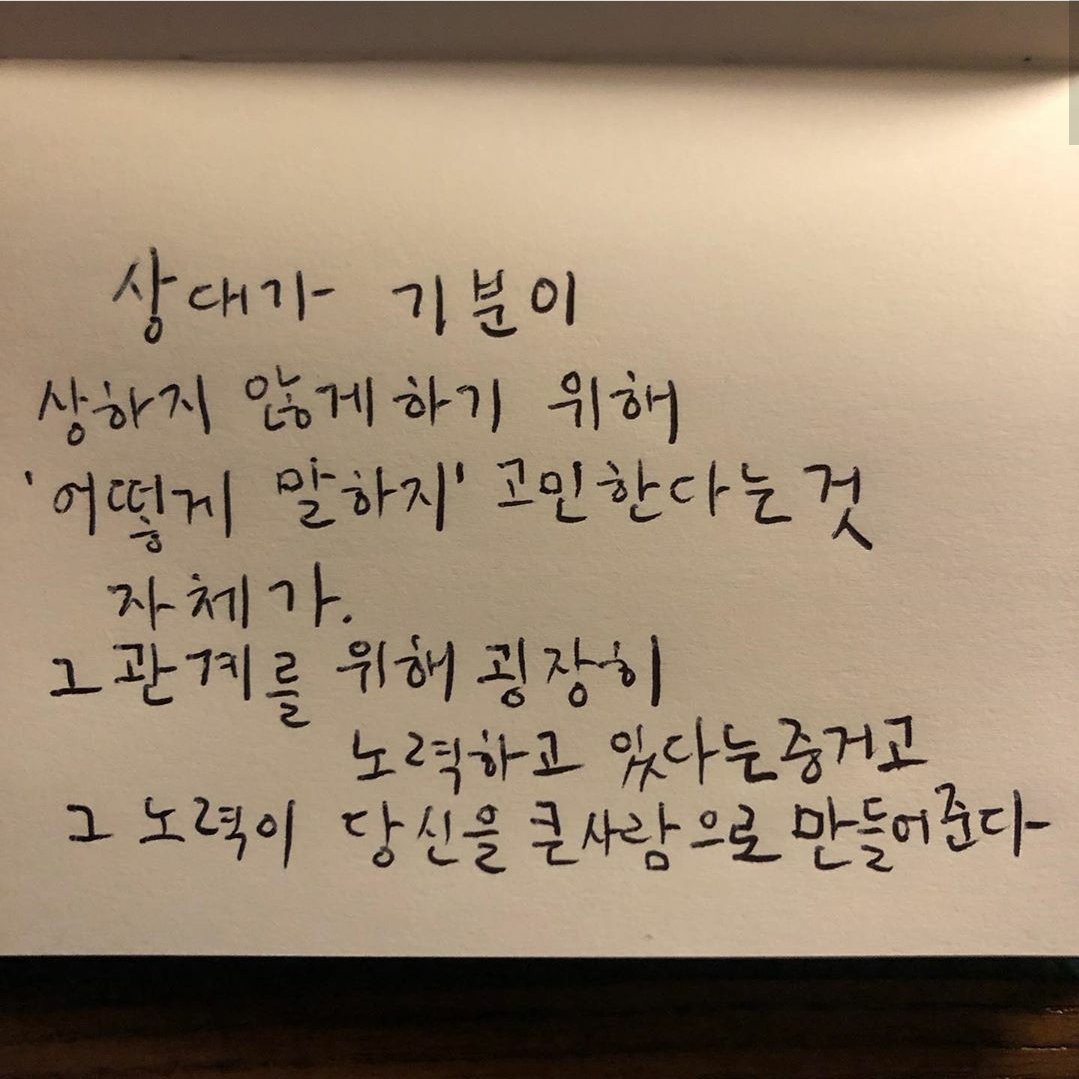 상대가 기분이
상하지 않게하기 위해
'어떻게 말하지' 고민한다는것
자체가.
그관계를 위해 굉장히
노력하고 있다는증거고
그 노력이 당신을 큰사람으로 만들어준다